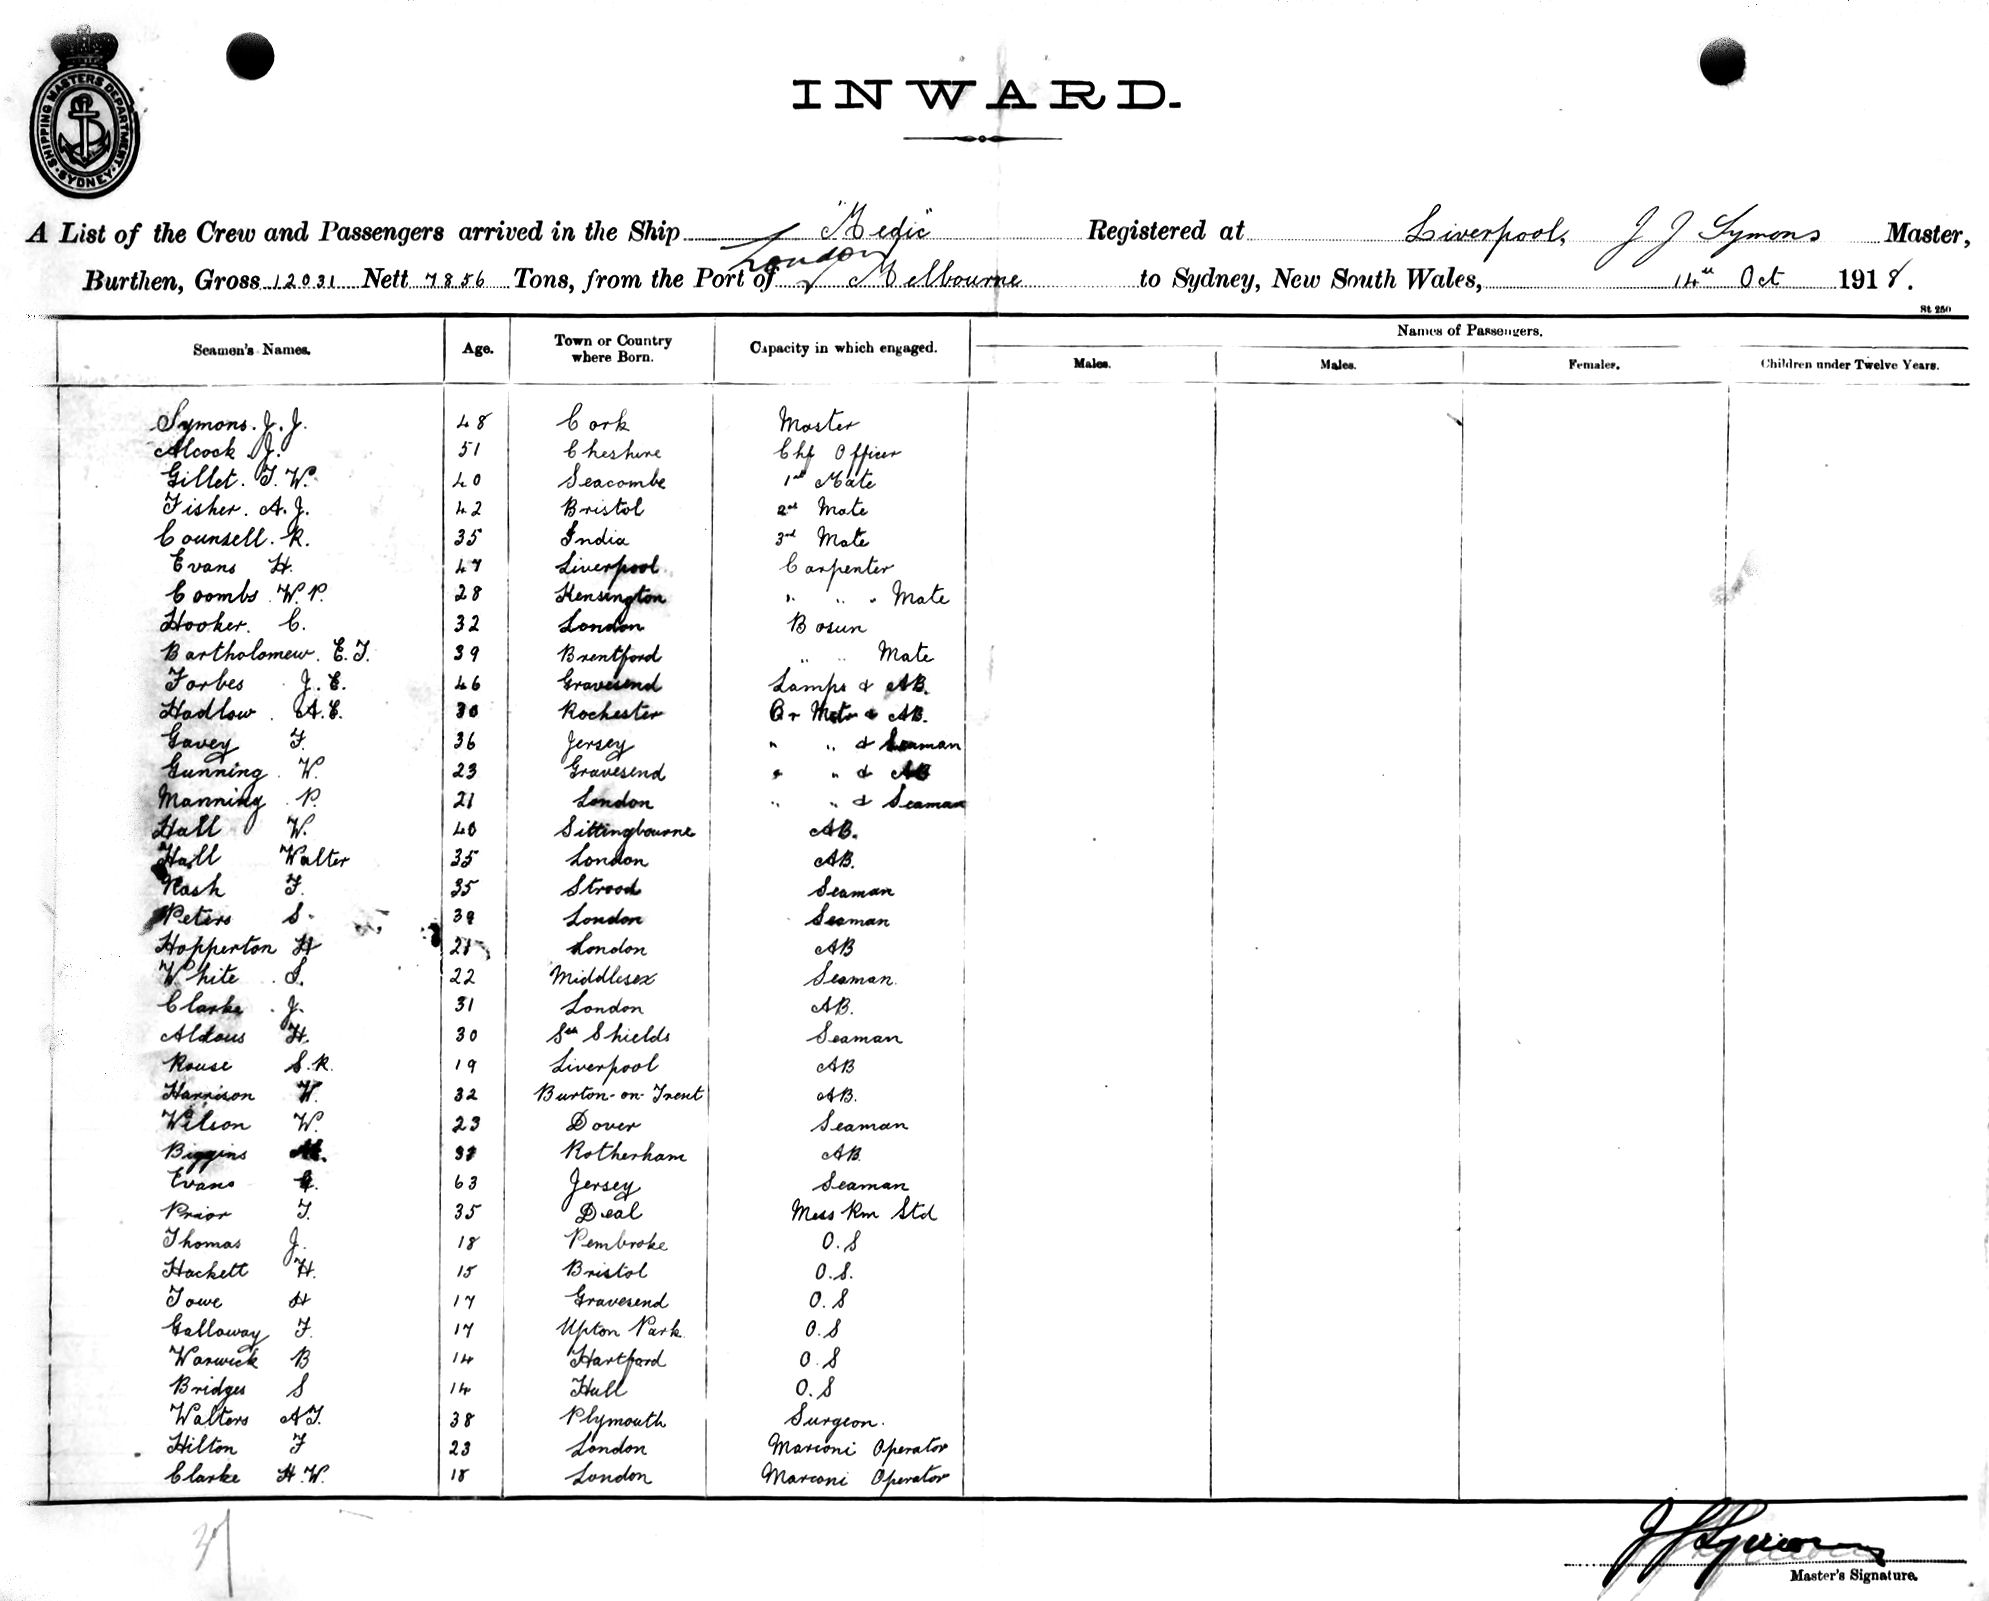 SHIPPING MASTERS DEPARTMENT
SYDNEY
INWARD.
A List of the Crew and Passengers arrived in the Ship "Medic" Registered at Liverpool, J J Symons Master,
London
Burthen, Gross 12031 Nett 7856 Tons, from the Port of Melbourne to Sydney, New South Wales, 14th Oct 1918.
St 250
Seamen's Names. Age. Town or Country where Born. Capacity in which engaged. Names of Passengers.
Males. Males. Females. Children under Twelve Years.
Symons. J. J. 48 Cork Master
Alcock J. 51 Cheshire Chf Officer
Gillet. T. W. 40 Seacombe 1st Mate
Fisher. A. J. 42 Bristol 2nd Mate
Counsell. R. 35 India 3rd Mate
Evans H. 47 Liverpool Carpenter
Coombs W. P. 28 Kensington " " " Mate
Hooker. C. 32 London Bosun
Bartholomew. E. T. 39 Brentford " " Mate
Forbes J. E. 46 Gravesend Lamps & AB.
Hadlow. A. E. 30 Rochester Qr Mstr & AB.
Gavey F. 36 Jersey " " & Seaman
Gunning W. 23 Gravesend " " & AB
Manning P. 21 London " " & Seaman
Hall W. 40 Sittingbourne AB.
Hall Walter 35 London AB.
Nash F. 35 Strood Seaman
Peters S. 39 London Seaman
Hopperton H 21 London AB
White S. 22 Middlesex Seaman.
Clarke J. 31 London AB.
Aldous H. 30 Sth Shields Seaman
Rouse S. R. 19 Liverpool AB
Harrison W. 32 Burton-on-Trent AB.
Wilson W. 23 Dover Seaman
Biggins Rotherham AB.
Evans G. 63 Jersey Seaman
Prior T. 35 Deal Mess Rm Std
Thomas J. 18 Pembroke O.S
Hackett H. 15 Bristol O.S.
Towe H 17 Gravesend O.S
Galloway F. 17 Upton Park O.S
Warwick B 14 Hartford O.S
Bridges S 14 Hull O.S
Walters A T. 38 Plymouth Surgeon.
Hilton F 23 London Marconi Operator
Clarke H. W. 18 London Marconi Operator
37
J J Symons
Master's Signature.